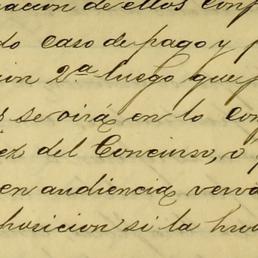 uacion de ellos conf
do caso de pago y p
cion 2.ª luego que p
se oirá en lo Con
ez del Concurso, ó
en audiencia verva
posicion si la hu